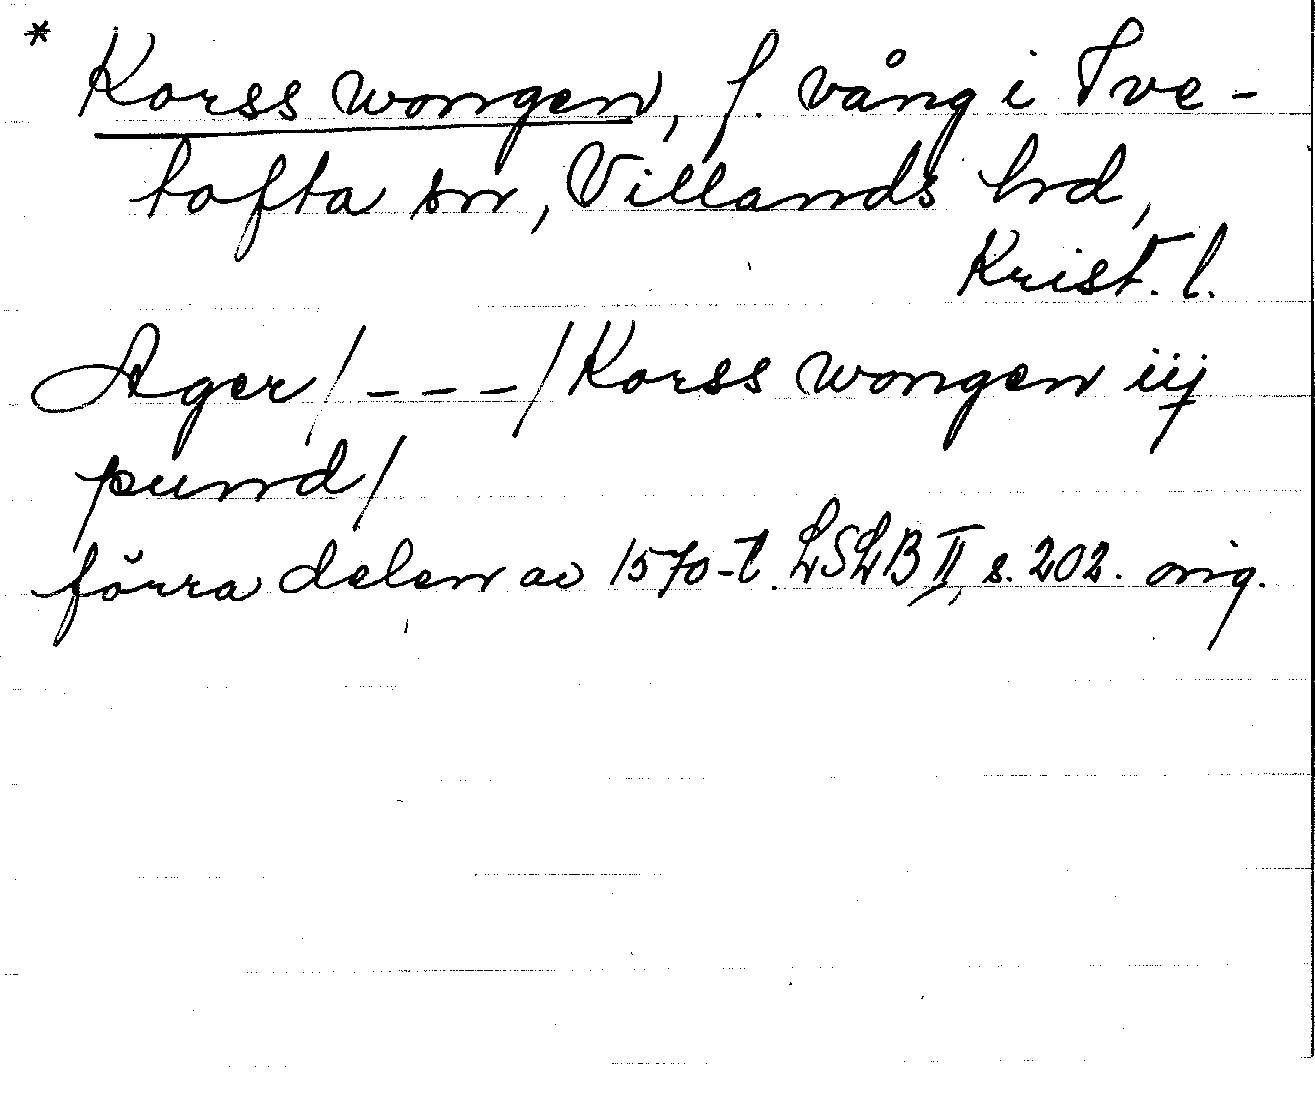 * Korss wongen, f. vång i Tve-
tofta sn, Villands hrd,
Krist. l.
Ager/ _ _ _/ Korss wongen iij
pund/
förra delen av 1570-t. LSLB II, s. 202. orig.